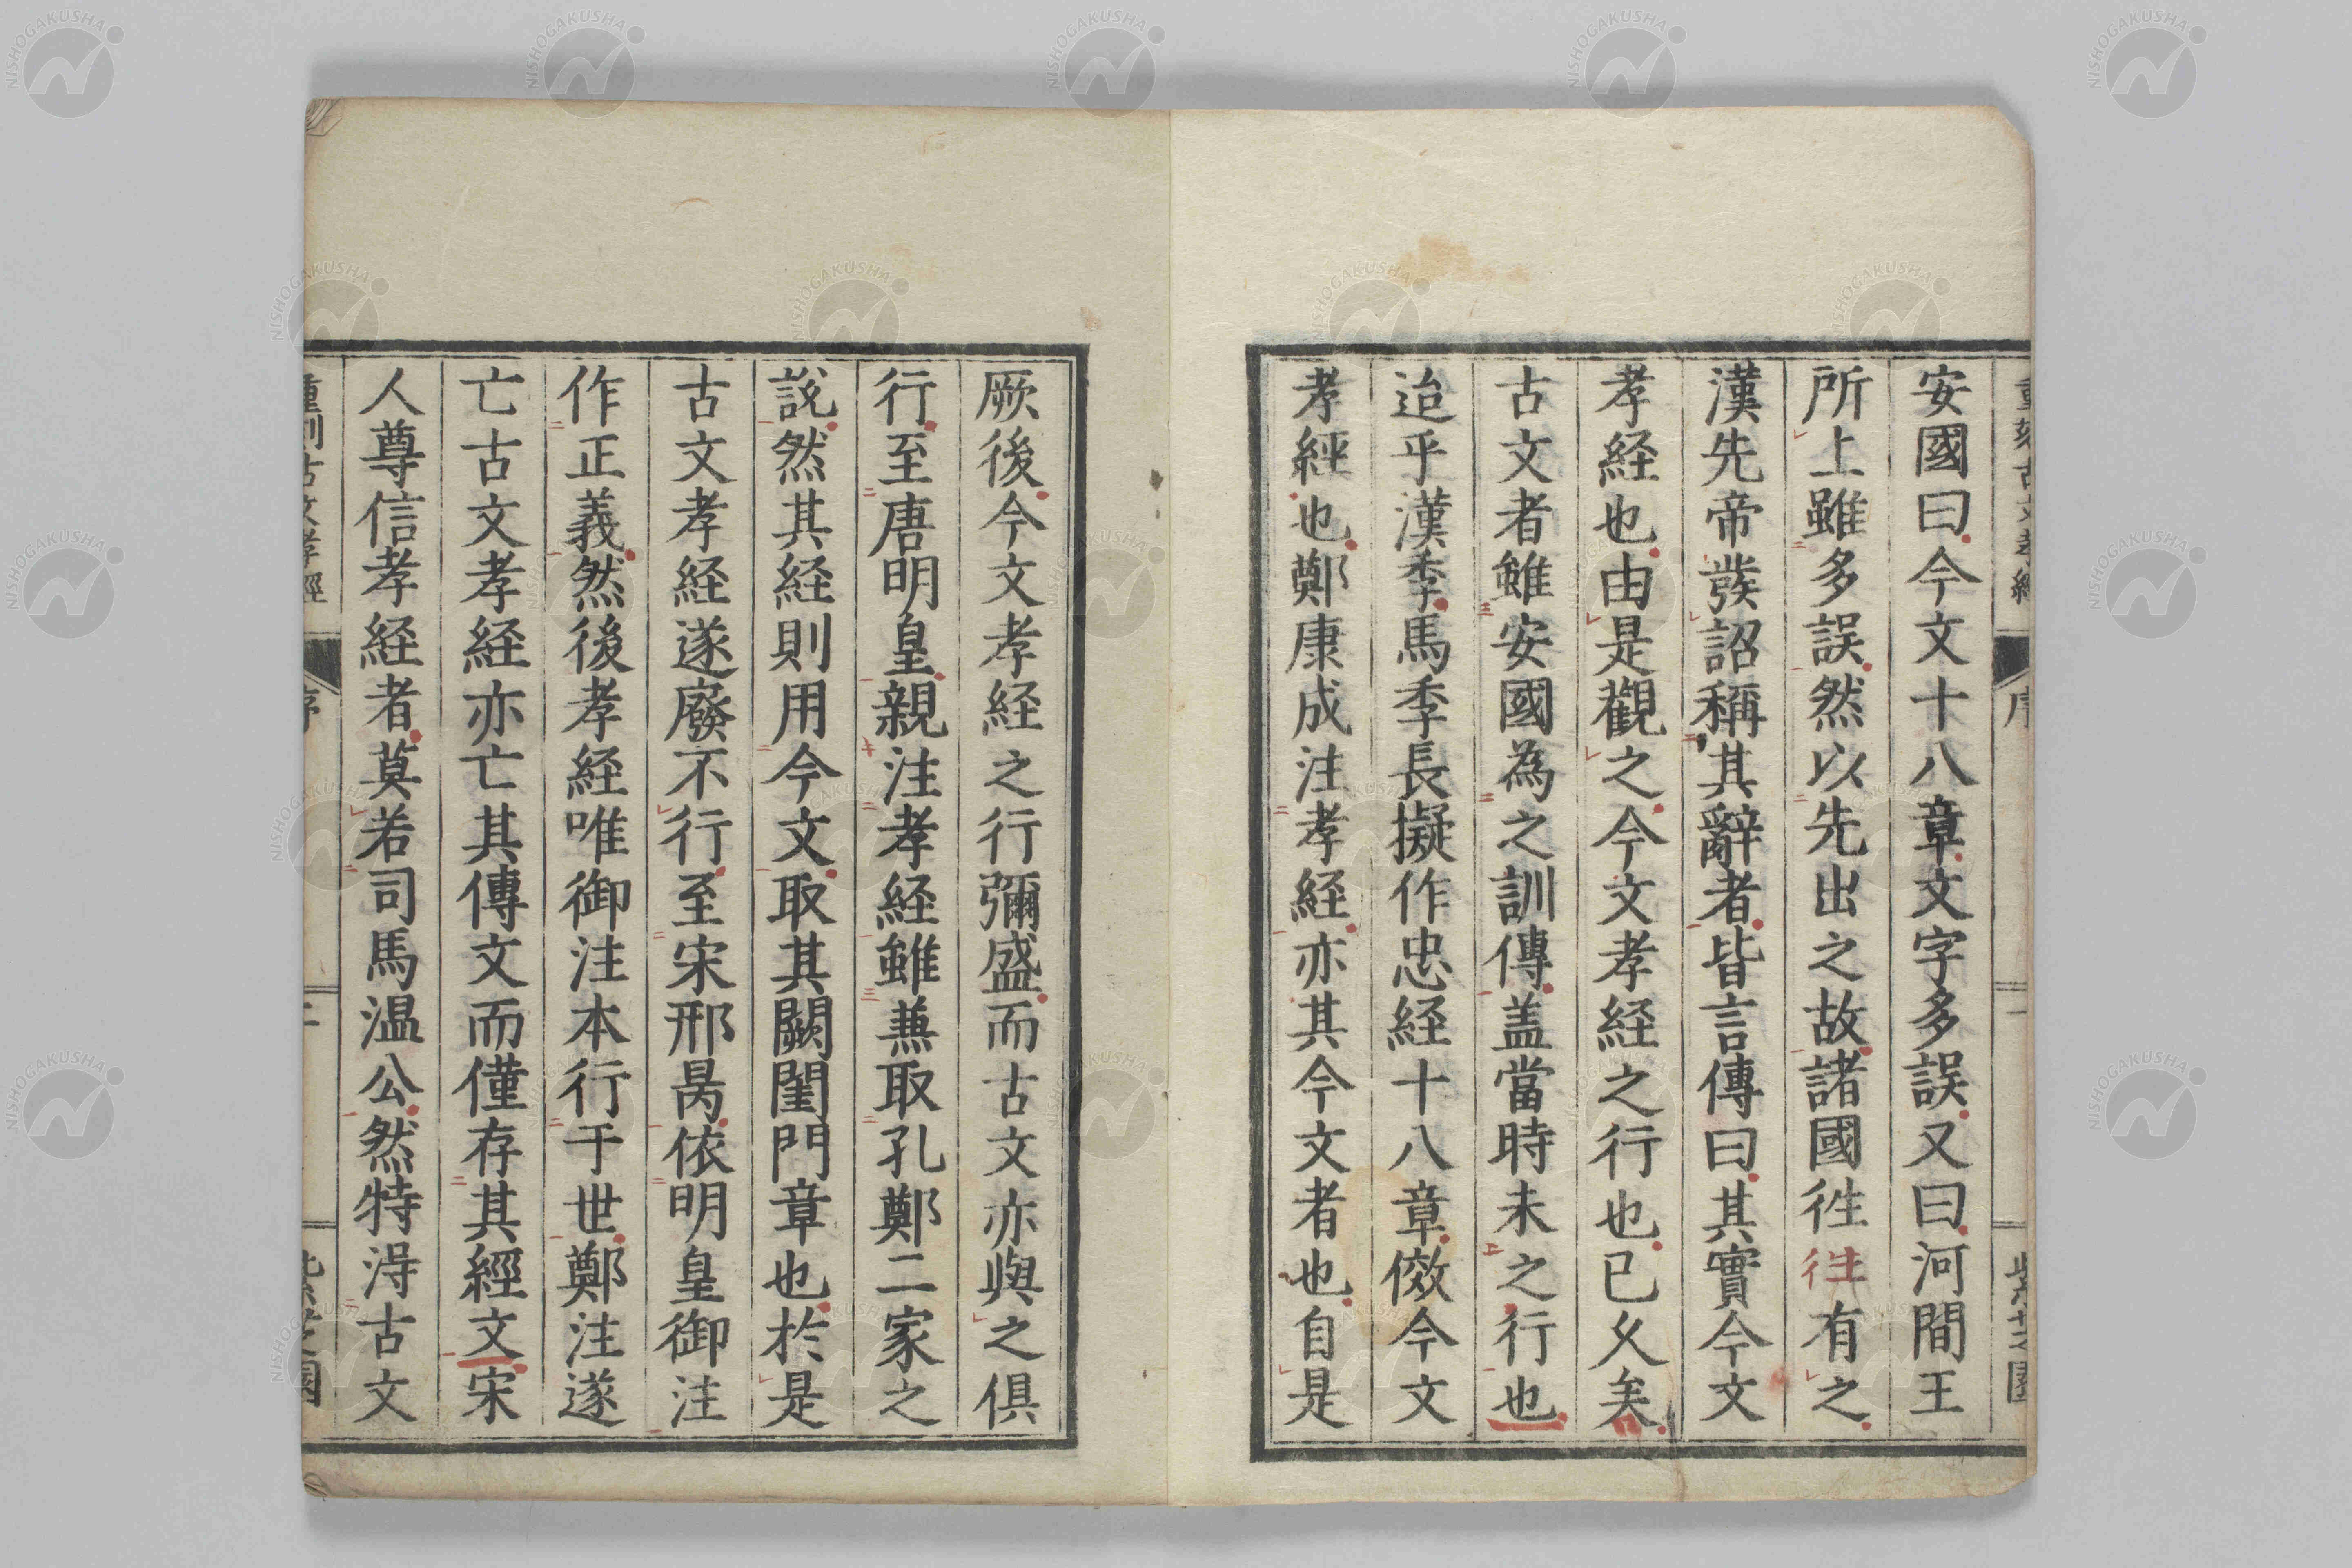 安國曰今文十八章文字多誤又曰河間王
所上雖多誤然以先出之故諸國徃徃有之
漢先帝發詔稱其辭者皆言傳曰其實今文
孝経也由是觀之今文孝経之行也已久矣
古文者雖安國為之訓傳盖當時未之行也
迨乎漢季馬季長擬作忠経十八章傚今文
孝經也鄭康成注孝経亦其今文者也自是
厥後今文孝経之行彌盛而古文亦與之俱
行至唐明皇親注孝経雖兼取孔鄭二家之
說然其経則用今文取其闕閨門章也於是
古文孝経遂廢不行至宋邢昺依明皇御注
作正義然後孝経唯御注本行于世鄭注遂
亡古文孝経亦亡其傳文而僅存其經文宋
人尊信孝経者莫若司馬温公然特淂古文
重刻古文孝經
序
二
紫芝園
NISHOGAKUSHA